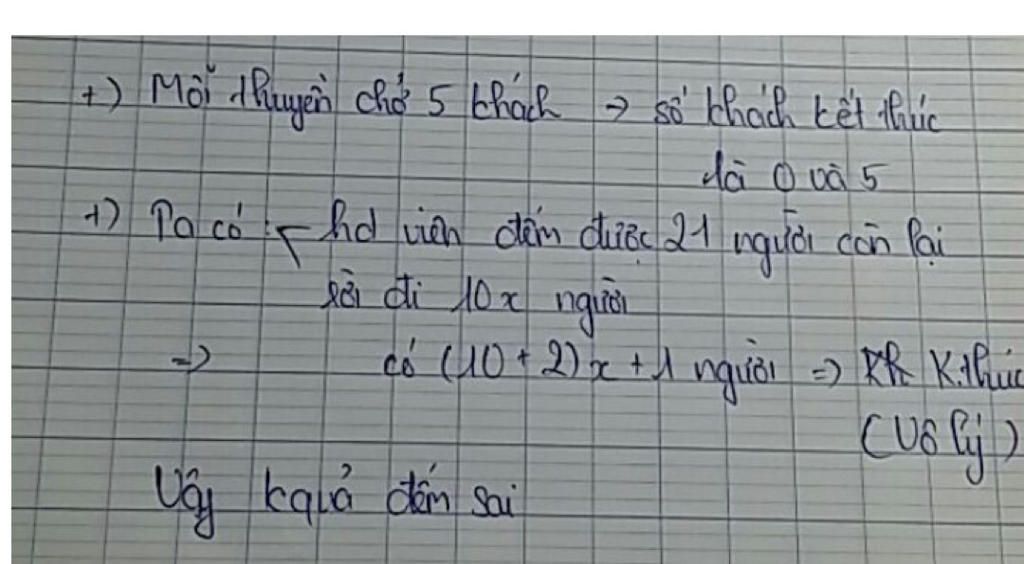 +) Mỗi thuyền chở 5 khách → số khách kết thúc
là 0 và 5
+) Ta có : hd viên đếm được 21 người còn lại
rồi đi 10x người
=> có (10 + 2)x + 1 người => K.thúc
(Vô lý)
Vậy kquả đếm sai